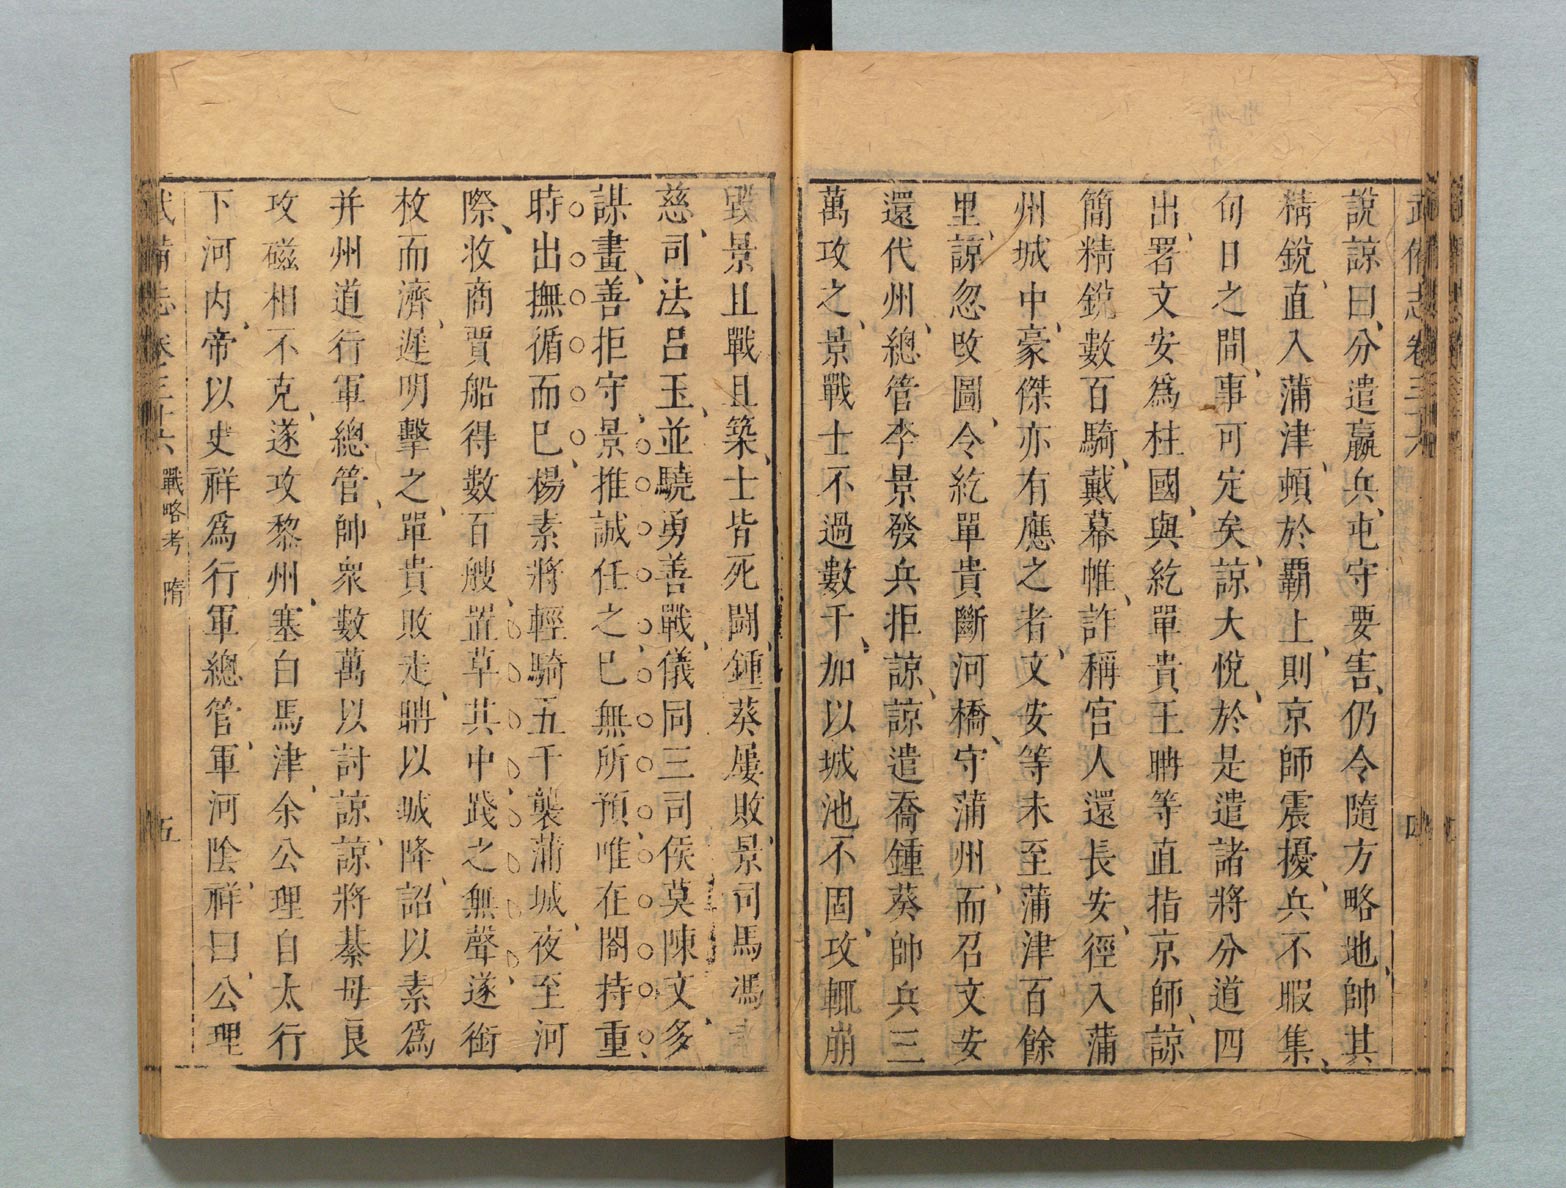 武備志卷三十六
四
說諒曰、分遣嬴兵、屯守要害、仍令隨方略地、帥其
精銳、直入蒲津、頓於覇上、則京師震擾、兵不暇集、
旬日之間、事可定矣、諒大悅、於是遣諸將分道四
出、署文安爲柱國、與紇單貴王聃等直指京師、諒
簡精銳數百騎、戴冪帷、詐稱官人還長安、徑入蒲
州城中、豪傑亦有應之者、文安等未至蒲津百餘
里、諒忽改圖、令紇單貴斷河橋、守蒲州、而召文安
還代州、總管李景發兵拒諒、諒遣喬鍾葵帥兵三
萬攻之、景戰士不過數千、加以城池不固、攻輒崩
毀景且戰且築、士皆死鬪、鍾葵屢敗、景司馬馮
慈、司法呂玉、並驍勇善戰、儀同三司侯莫陳文、多
謀畫、善拒守、景推誠任之、已無所預、唯在閤持重、
時出撫循而已、楊素將輕騎五千襲蒲城、夜至河
際、收商賈船得數百艘、置草其中、踐之無聲、遂銜
枚而濟、遲明擊之、單貴敗走、聃以城降、詔以素爲
并州道行軍總管、帥衆數萬以討諒、諒將綦毋良
攻磁相不克、遂攻黎州、塞白馬津、余公理自太行
下河內、帝以史祥爲行軍總管、軍河陰、祥曰、公理
武備志卷三十六 戰略考 隋
五